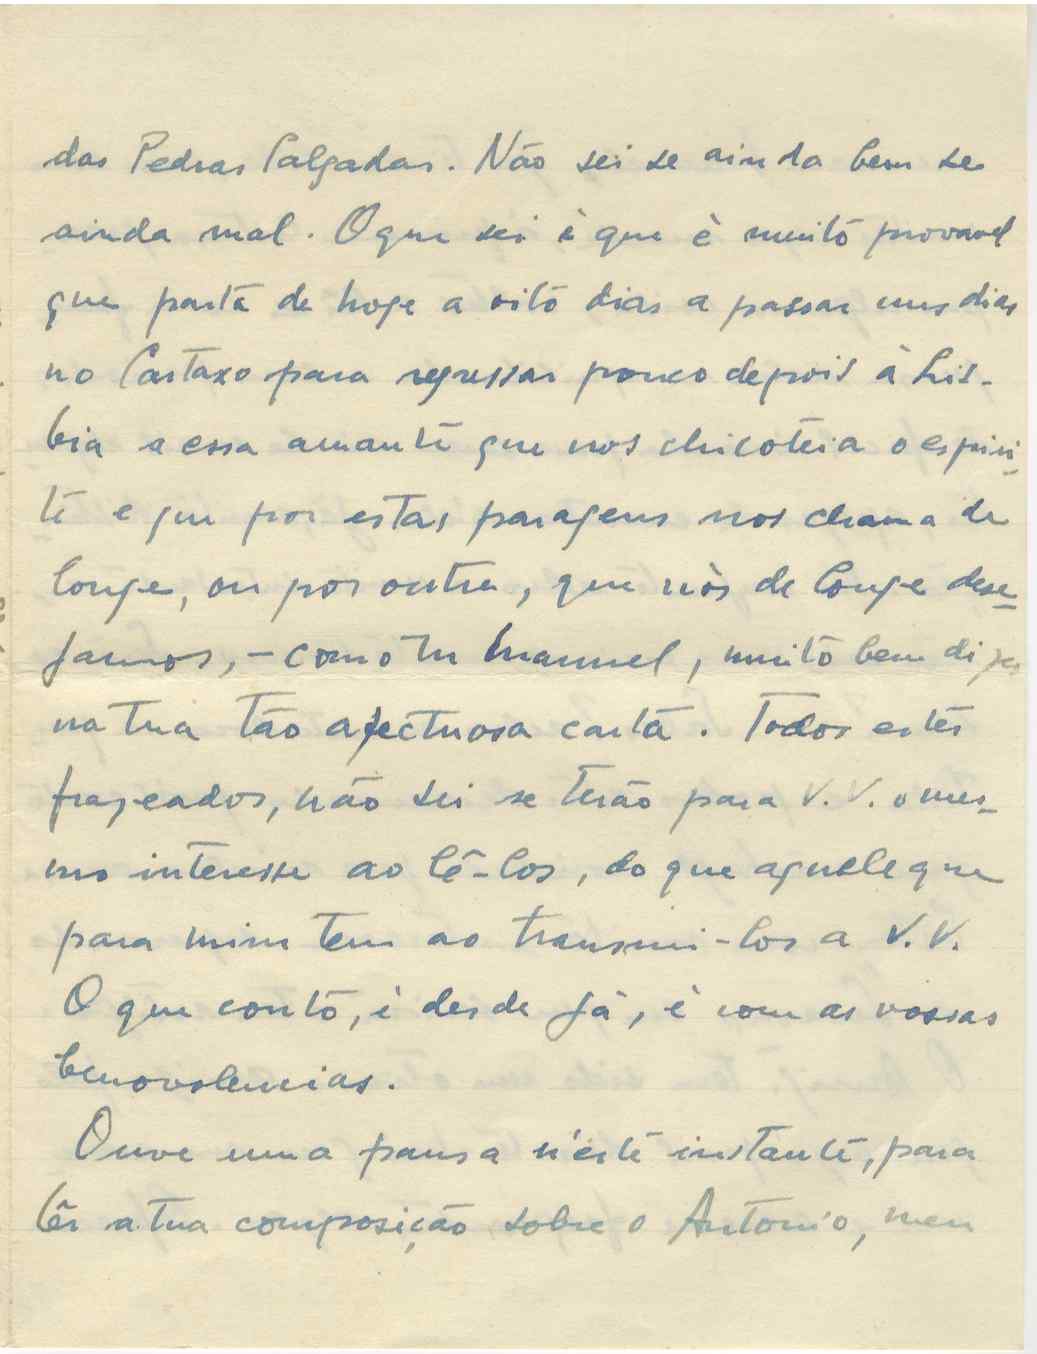 das Pedras Salgadas. Não sei se ainda bem se
ainda mal. O que sei è que è muito provavel
que parta de hoge a oito dias a passar uns dias
no Cartaxo para regressar pouco depois à Lis-
bia a essa amante que nos chicoteia o espiri-
to e que por estas paragens nos chama de
longe, ou por outra, que nòs de longe dese-
jamos, - como tu Manuel, muito bem dizes
na tua tão afectuosa carta. Todos estes
frazeados, não sei se terão para V. V. o mes-
mo interesse ao lê-los, do que aquele que
para mim tem ao transmi-los a V. V.
O que conto, è desde jà, è com as vossas
benovolencias.
Ouve uma pausa n'este instante, para
lêr a tua composição sobre o Antonio, meu